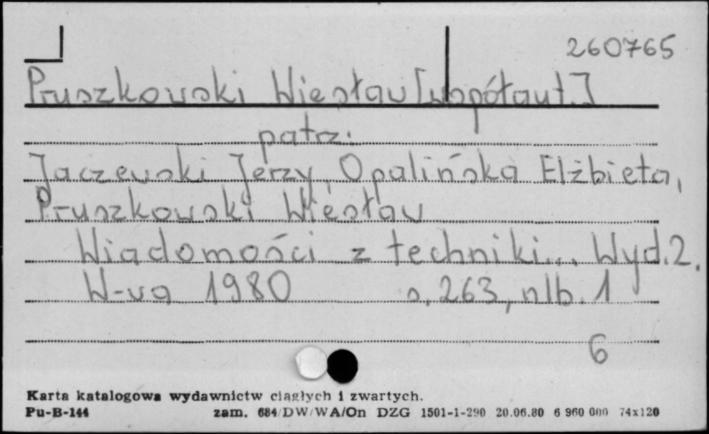 260765
Pruszkowski Wiesław [współaut.]
patrz:
Jaczewski Jerzy, Opalińska Elżbieta,
Pruszkowski Wiesław
Wiadomości z techniki... Wyd. 2.
W-wa 1980 s. 263, nlb. 1
6
Karta katalogowa wydawnictw ciągłych i zwartych.
Pu-B-144 zam. 684/DW/WA/On DZG 1501-1-290 20.06.80 6 960 000 74x120